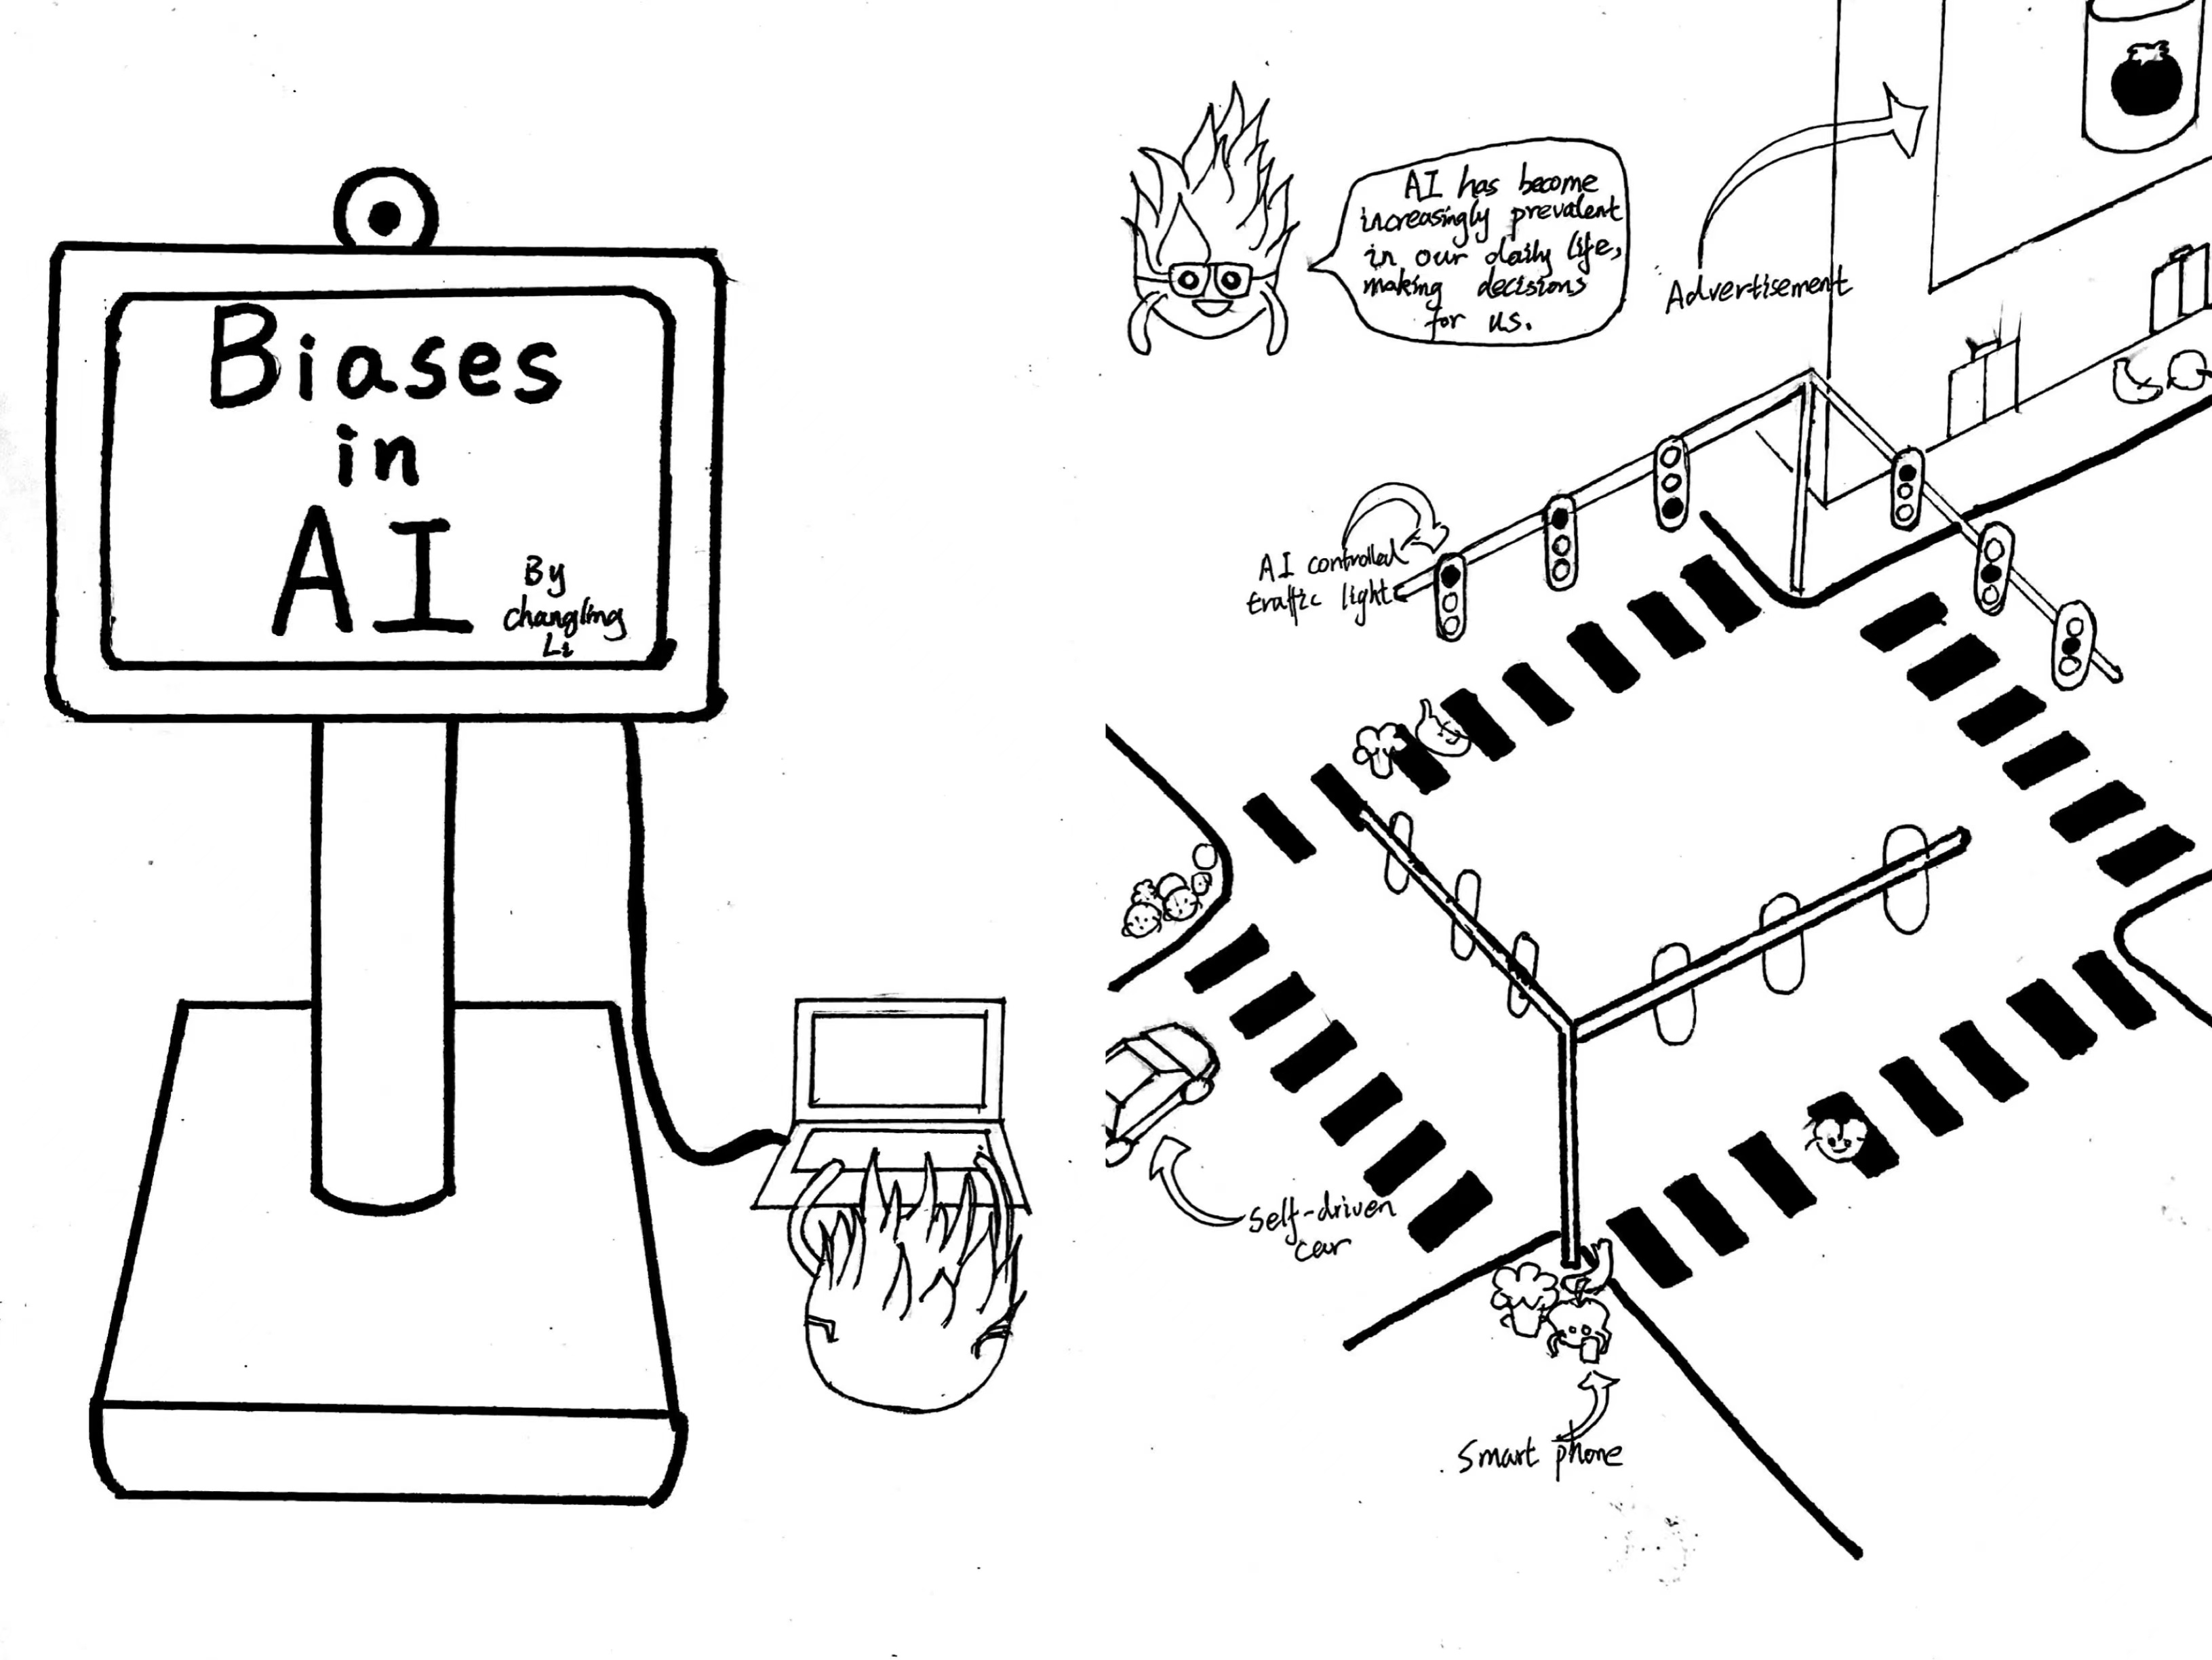 Biases
in
AI
By
Changling
Li
AI has become
increasingly prevalent
in our daily life,
making decisions
for us.
Advertisement
AI controlled
traffic light
Self-driven
car
Smart phone